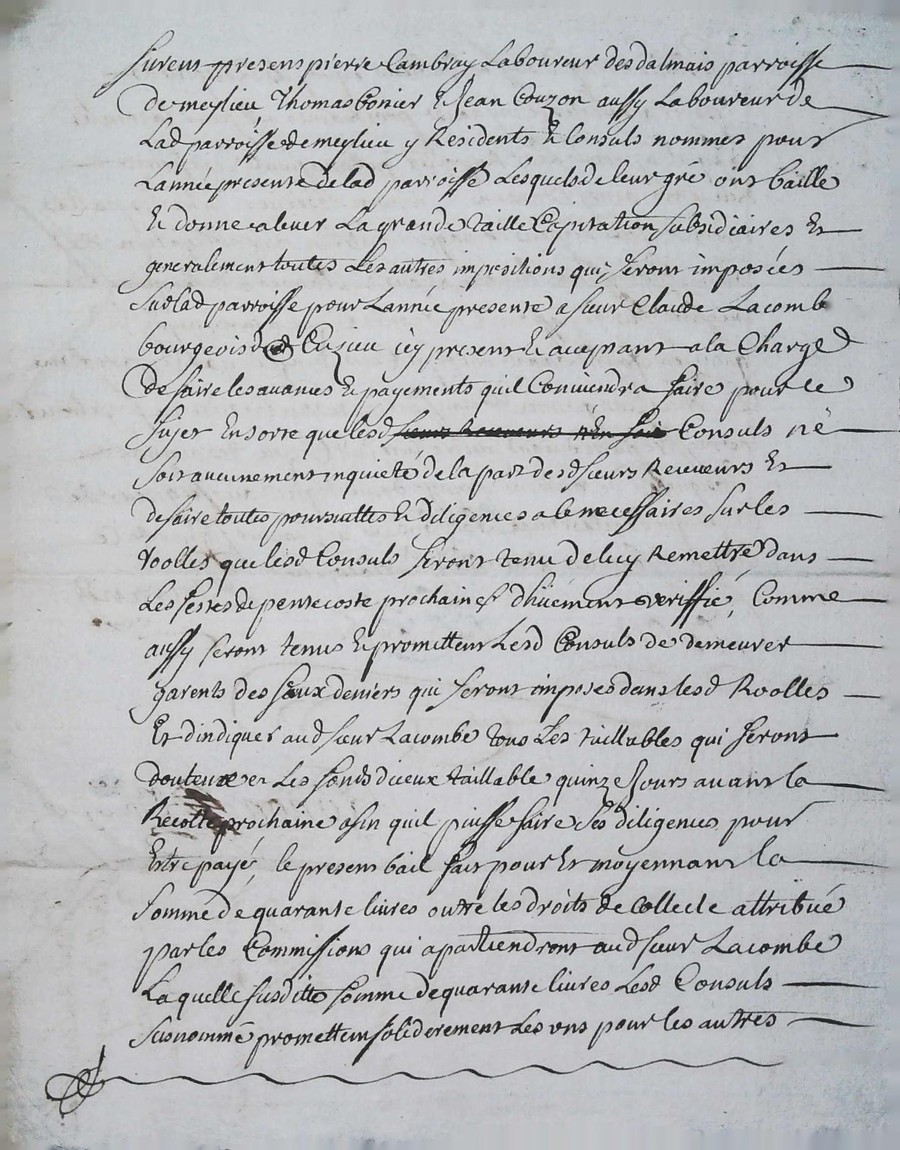 furent presens pierre Cambray Laboureur des dalmais parroisse
de meylieu Thomas Gonier & Jean Couzon aussy Laboureur de
Lad parroisse de meylieu y Residents & Consuls nommes pour
Lannée presente de lad parroisse Lesquels de leur gré ont baille
& donne a lever La grande taille Capitation subsidiaires Et
generalement toutes Les autres impositions qui seront imposées
Sur lad parroisse pour Lannée presente a sieur Claude Lacombe
bourgeois de Cuzieu icy present & acceptant a la Charge
de faire les avances & payements quil Conviendra faire pour ce
sujet En sorte que lesd Consuls ne
soit aucunement inquieté de la part desd sieurs Receveurs Et
de faire toutes poursuittes & diligences a ce necessaires sur les
Roolles que lesd Consuls seront tenu de luy Remettre dans
Les festes de pentecoste prochaines dhüement veriffié, Comme
aussy seront tenus & promettent Lesd Consuls de demeurer
garents des faux deniers qui seront imposes dans lesd Roolles
Et dindiquer aud sieur Lacombe tous Les taillables qui seront
douteux et Les fonds diceux taillable quinze Jours avant la
Recolte prochaine afin quil puisse faire Ses diligences pour
Estre payé, le present bail fait pour Et moyennant la
Somme de quarante livres outre les droits de Collecte attribué
par les Commissions qui apartiendront aud sieur Lacombe
Laquelle susditte somme de quarante livres Lesd Consuls
susnommé promettent soliderement Les uns pour les autres